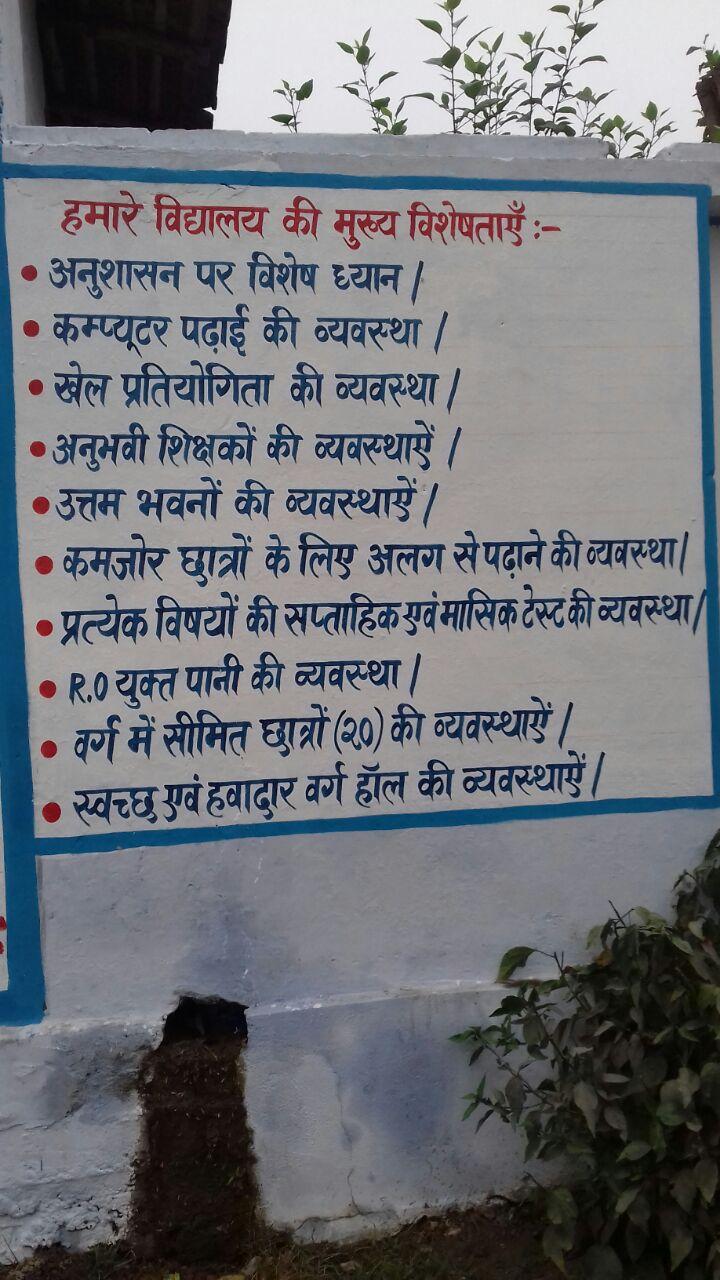 हमारे विद्यालय की मुख्य विशेषताएँ :-
• अनुशासन पर विशेष ध्यान |
• कम्प्यूटर पढ़ाई की व्यवस्था |
• खेल प्रतियोगिता की व्यवस्था |
• अनुभवी शिक्षकों की व्यवस्थाऐं |
• उत्तम भवनों की व्यवस्थाऐं |
• कमजोर छात्रों के लिए अलग से पढ़ाने की व्यवस्था |
• प्रत्येक विषयों की सप्ताहिक एवं मासिक टेस्ट की व्यवस्था |
• R.O युक्त पानी की व्यवस्था |
• वर्ग में सीमित छात्रों (२०) की व्यवस्थाऐं |
• स्वच्छ एवं हवादार वर्ग हॉल की व्यवस्थाऐं |